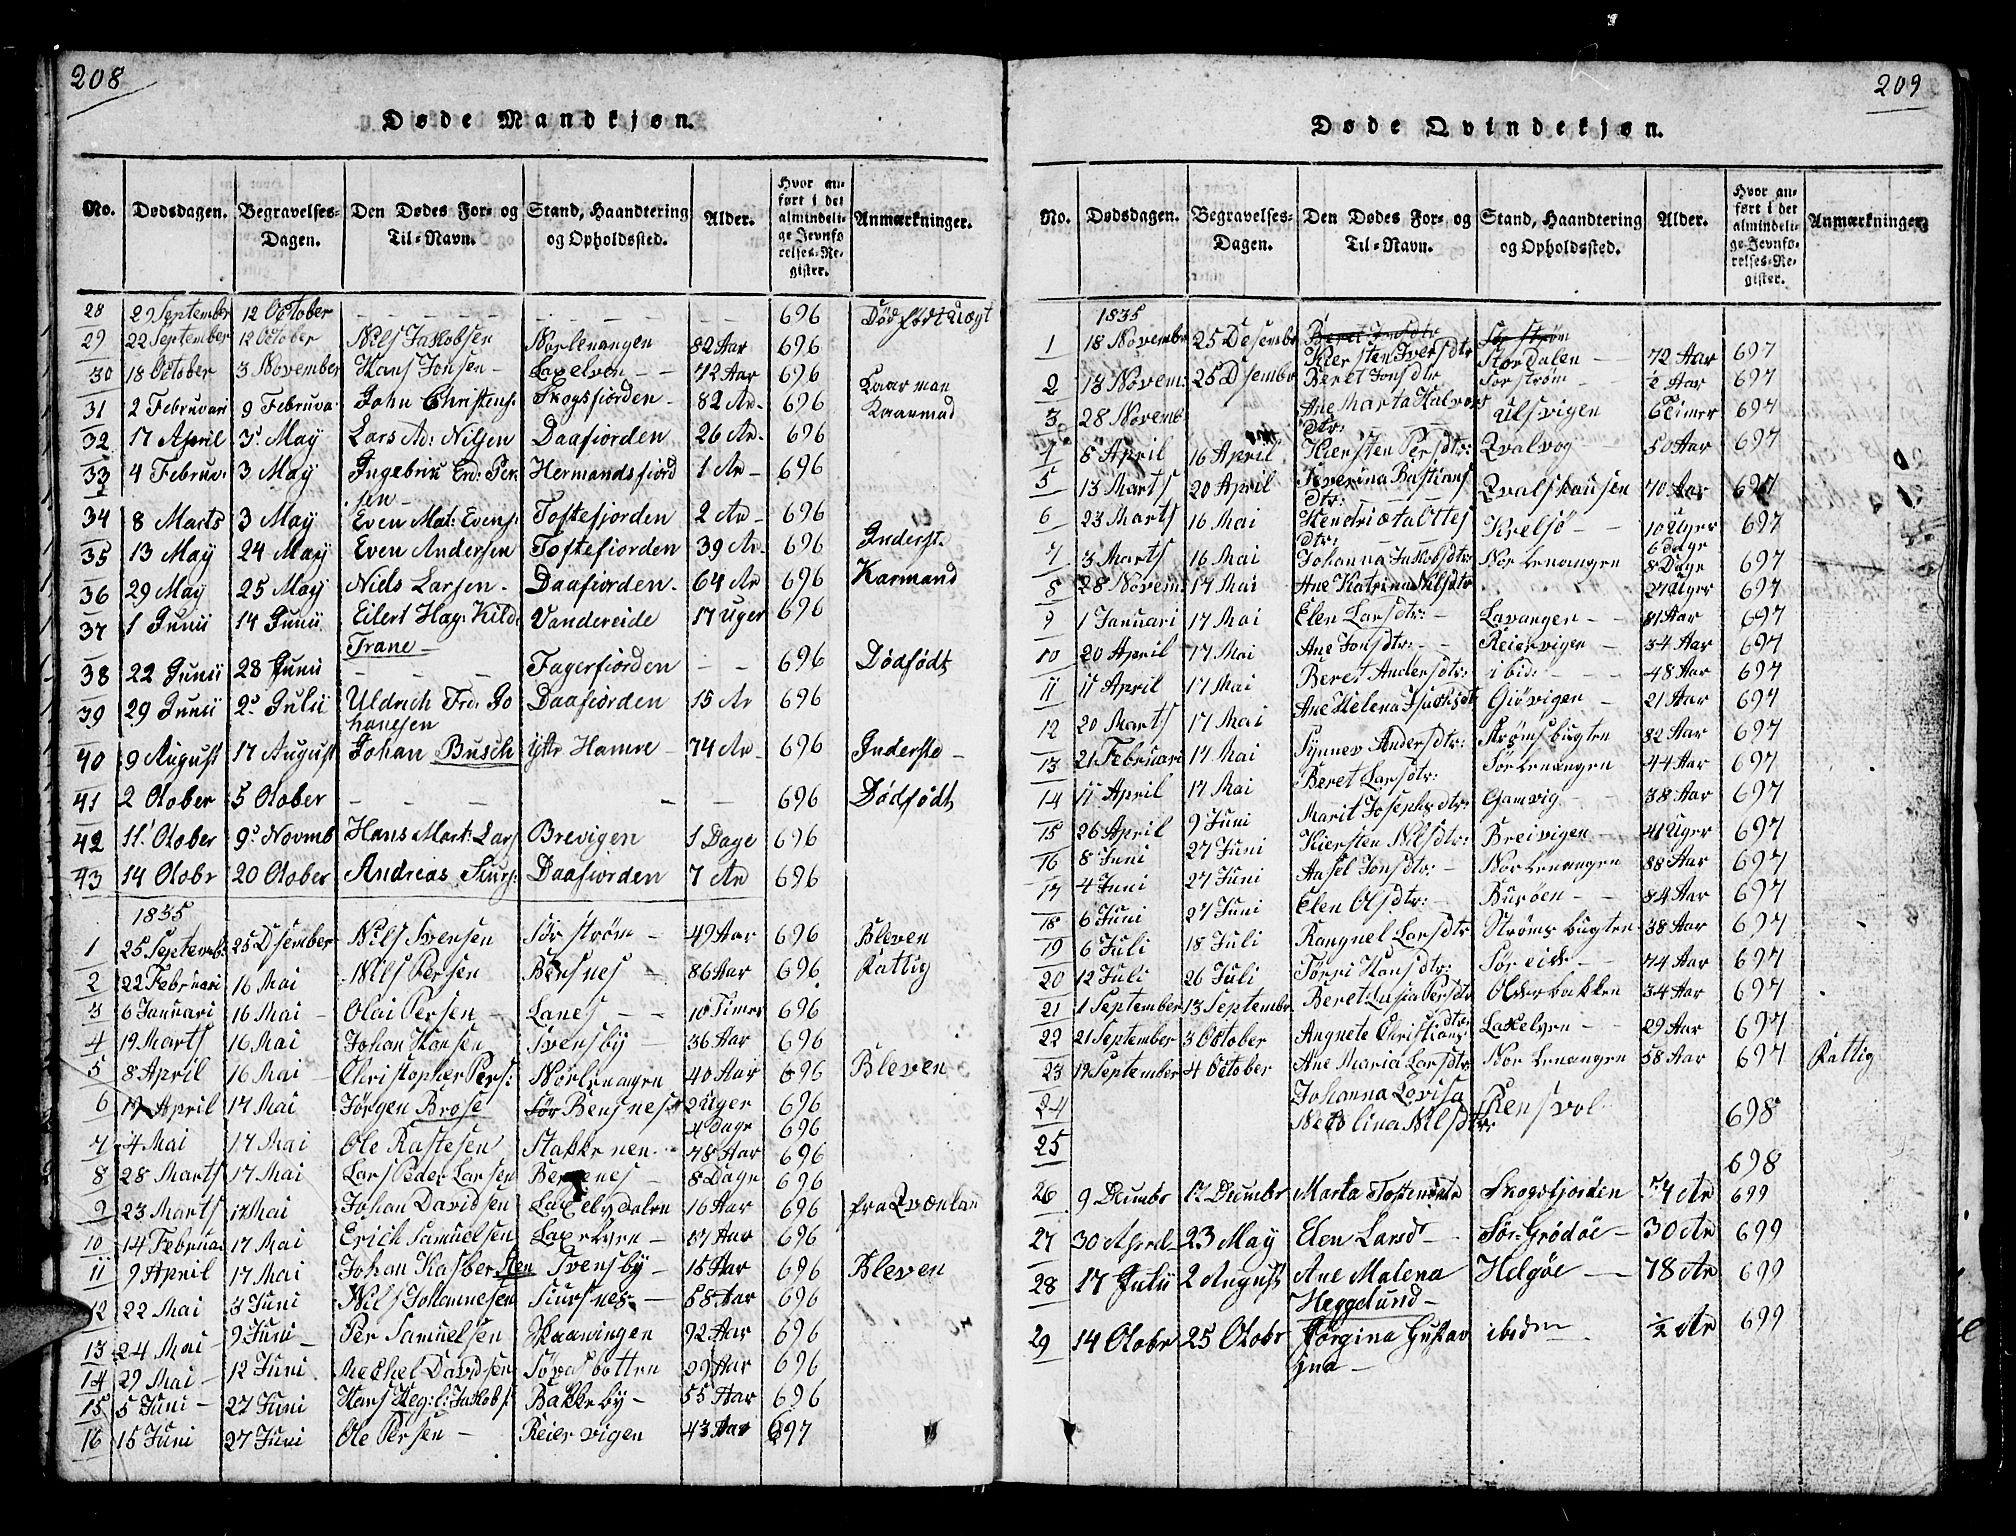 208
Døde Mandkjøn.
No. Dødsdagen. Begravelses-Dagen. Den Dødes For- og Til-Navn. Stand, Haandtering og Opholdssted. Alder. Hvor anført i det almindelige Jevnførelses-Register. Anmærkninger.
28 29 September 12 October — — — 696 Dødfødt Uægt
29 22 September 12 October Nils Jakobsen Nørlenangen 82 Aar 696
30 18 October 3 November Hans Jonsen - Laxelven - - 72 Aar 696
31 2 Februvari 9 Februva John Christens: Skogsfiorden - 82 Ar - 696 Kaarmand
32 17 April 3' May Lars Ad: Nilsen Daafiorden 26 Ar - 696
33 4 Februv. 3 May Ingebrik Erd: Per Hermandsfiord 1 Ar - 696
sen -
34 8 Marts 3 May Even Mat: Evens: Toftefiorden 2 Ar - 696
35 13 May 24 May Even Andersen Toftefiorden 39 Ar - 696 Inderst.
36 29 May 25 May Niels Larsen - Daafiorden - 64 Ar 696 Karmand
37 1 Junii 14 Junii Eilert Hag: Kild: Vandereide 17 Uger 696
Trane -
38 22 Junii 28 Junii — Fagerfiorden - - 696 Dødfødt
39 29 Junii 2' Julii Uldrich Frd: Jo Daafiorden 15 Ar 696
hanesen
40 9 August 17 August Johan Busch Yttr Hamre - 74 Ar - 696 Inderste -
41 2 Otober 5 Otober — — — 696 Dødfødt
42 11' Otober 9' Novmb Hans Mart: Lars Brevigen 1 Dage 696
43 14 Otobr 20 Otober Andreas Siurs: Daafiorden 7 Ar 696
1835
1 25 Septemb: 25 Dsember Nils Svensen Sør strøm - 49 Aar 696 Bleven
2 22 Februari 16 Mai Nils Persen Bensnes - 86 Aar 696 Rattig
3 6 Januari 16 Mai - Olai Persen - Lanes - - 10 Timer 696
4 19 Marts 16 Mai Johan Hansen Svensby - 36 Aar 696
5 8 April 16 Mai - Christopher Pers: Nørlenangen 40 Aar 696 Bleven
6 17 April 17 Mai Jørgen Brose Sør Bensnes 2 Uger 696
4 Dage
7 4 Mai 17 Mai Ole Rastesen Stakkenen - 78 Aar 696
8 28 Marts 17 Mai Lars Peder Larsen 8 Dage 696
9 23 Marts 17 Mai Johan Davidsen Laxelvdalen 16 Aar 696 fra Qvænlan
10 14 Februa. 17 Mai Erich Samuelsen Laxelven - 17 Aar 696
11 9 April 17 Mai Johan Kasbersten Svensby - 15 Aar 696 Bleven
12 22 Mai 3 Juni Nils Johannesen Siursnes - 68 Aar 696
13 24 Mai - 9 Juni - Per Samuelsen Kaaningen 92 Aar 696
14 29 Mai - 12 Juni Mechel Davidsen Sørdsbotten 29 Aar 696
15 5 Juni - 27 Juni Hans Heg: l: Jakobs: Bakkeby - 55 Aar 696
16 15 Juni 27 Juni Ole Persen - Reiervigen 43 Aar 697
209
Døde Qvindekjøn.
No. Dødsdagen. Begravelses-Dagen. Den Dødes For- og Til-Navn. Stand, Haandtering og Opholdssted. Alder. Hvor anført i det almindelige Jevnførelses-Register. Anmærkninger.
1835
Beret Jonsdtr Sør strøm
1 18 Novembr 25 Desembr Kiersten Iversdtr Stordalen - 72 Aar 697
2 13 Novem: 25 Dsembr Beret Jonsdtr Sørstrøm - ½ Aar 697
3 28 Novemb Ane Marta Halvors Ulsvigen 6 Timer 697
dtr:
4 8 April 16 April Kiersten Persdtr: Qvalvog - 50 Aar 697
5 13 Marts 20 April Severina Bastians Qvalshausen 70 Aar 697
dtr: -
6 23 Marts 16 Mai Hendrietta Ottes Kvelsø - 10 Uger 697
dtr: 6 dage
7 3 Marts 16 Mai Johanna Jakobsdtr: Nør lenangen 8 Dage 697
8 28 Novem: 17 Mai Ane Katrina Nilsdtr 27 Uger 697
9 1 Januari 17 Mai Elen Larsdtr: - Lavangen - 81 Aar 697
10 20 April 17 Mai Ane Jonsdtr: - Reiervigen - 34 Aar 697
11 11 April 17 Mai Beret Andersdtr: ibid: - 48 Aar 697
12 20 Marts 17 Mai Ane Helena Isachsdtr Giøvigen - 21 Aar 697
13 21 Februari 17 Mai Synnev Andersdtr: Strømsbugten 82 Aar 697
14 11 April 17 Mai Beret Larsdtr: Sør lenangen 44 Aar 697
15 26 April 9 Juni Marit Josephsdtr: Gamvig - 38 Aar 697
16 8 Juni 27 Juni Kiersten Nilsdtr: Breivigen - 41 Uger 697
17 4 Juni 27 Juni Aasel Jonsdtr: - Nør lenangen 88 Aar 697
18 6 Juni 27 Juni Elen Olsdtr: - Burøen - 84 Aar 697
19 6 Juli 18 Juli Rangnel Larsdtr Strømsbugten 38 Aar 697
20 12 Juli 26 Juli Tørri Hansdtr: Søreid - 74 Aar 697
21 1 September 13 Septembr Beret Lusia Persdtr Olderbakken 34 Aar 697
22 21 September 3 October Angnete Christians dtr: Laxelven - 29 Aar 697
23 19 September 4 October Ane Maria Larsdtr: Nør lenangen 58 Aar 697 Rattig
24 Johanna Lovisa
Nikolina Nilsdtr: Rensvol 698
25 698
26 9 Decmbr 17 Decmbr Marta Tostensdtr Skogsfjorden 74 Ar 699
27 30 April 23 May Elen Larsdt - Sør-Grødøe - 30 Ar 699
28 17 Julii 2 August Ane Malena Helgøe - 78 Ar 699
Heggelund -
29 14 Otobr 25 Otobr Jørgina Gustav ibidm ½ Ar 699
ina -